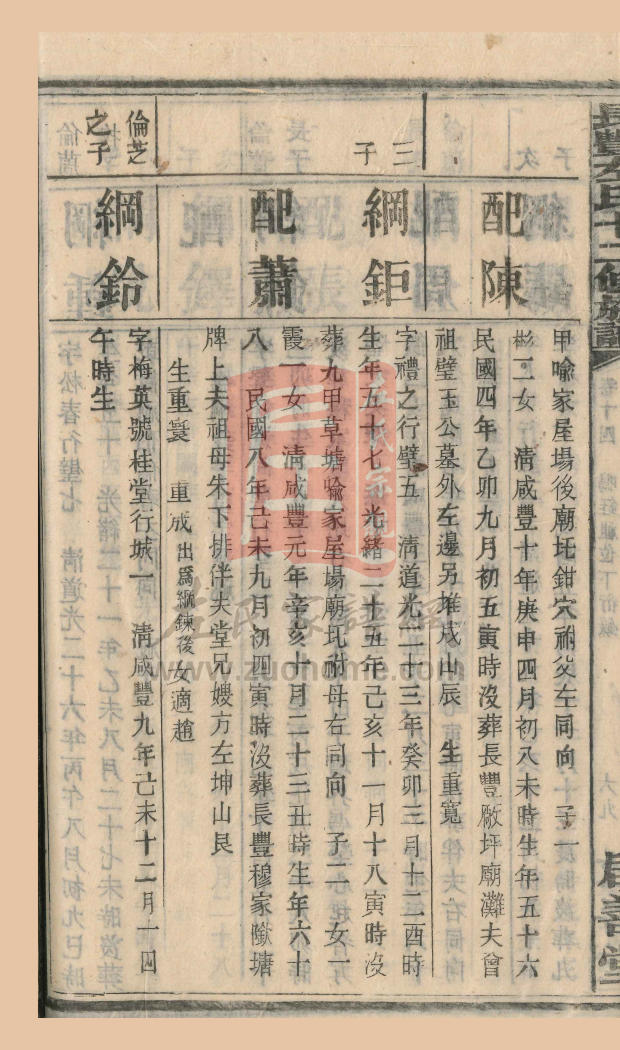 長豐左氏十二修族譜
卷十四
六九
甲喻家屋場後廟圫鉗穴祔父左同向 子一
彬二女 清咸豐十年庚申四月初八未時生年五十六
配陳
民國四年乙卯九月初五寅時沒葬長豐廠坪廟灘夫曾
祖璧玉公墓外左邊另堆戌山辰 生重寬
三子
綱鉅
字禮之行璧五 清道光二十三年癸卯三月十二酉時
生年五十七 光緒二十五年己亥十一月十八寅時沒
葬九甲草塘喻家屋場廟圫祔母右同向 子二女一
配蕭
霞一女 清咸豐元年辛亥十月二十三丑時生年六十
八 民國八年己未九月初四寅時沒葬長豐穆家塘
牌上夫祖母朱下排伴夫堂兄嫂方左坤山艮
生重寰 重成出爲綱鍊後女適趙
倫芝之子
綱鈴
字梅英號桂堂行城一 清咸豐九年己未十二月一四
午時生
左氏宗
左氏家譜網
www.zuohome.com